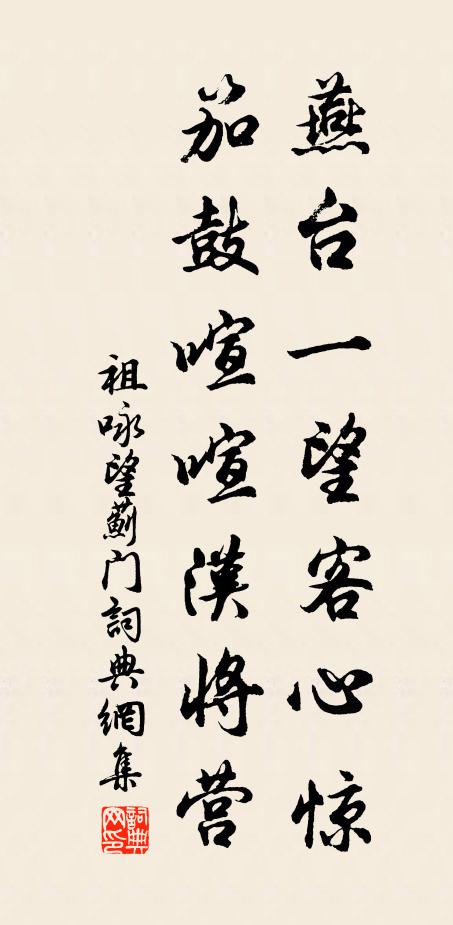 燕台一望客心惊
笳鼓喧喧漢将营
祖咏望薊门詞典網集
詞典网印